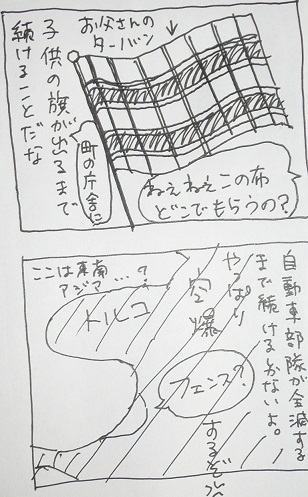 お父さんの
ターバン
↓
子供の旗が出るまで
続けることだな
町の庁舎に
ねえねえこの布
どこでもらうの?
自動車部隊が全滅する
まで続けるしかないよ。
やっぱり
空爆
するぞ
フェンス?
トルコ
ここは東南
アジア…?